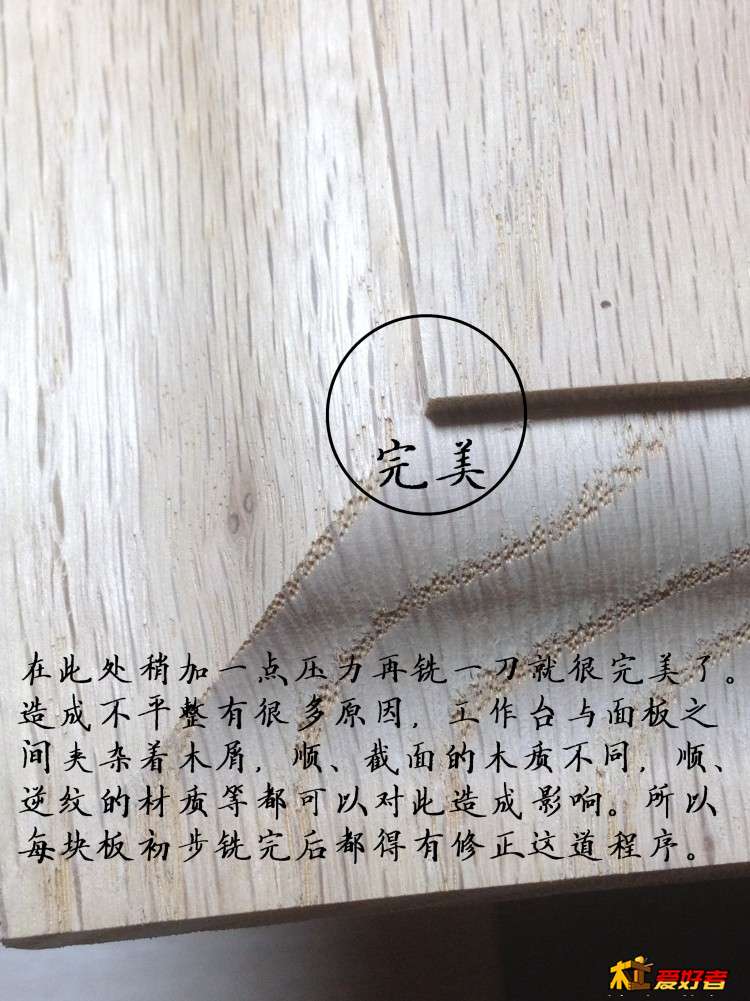 完美
在此处稍加一点压力再铣一刀就很完美了。
造成不平整有很多原因，工作台与面板之
间夹杂着木屑，顺、截面的木质不同，顺、
逆纹的材质等都可以对此造成影响。所以
每块板初步铣完后都得有修正这道程序。
木工爱好者